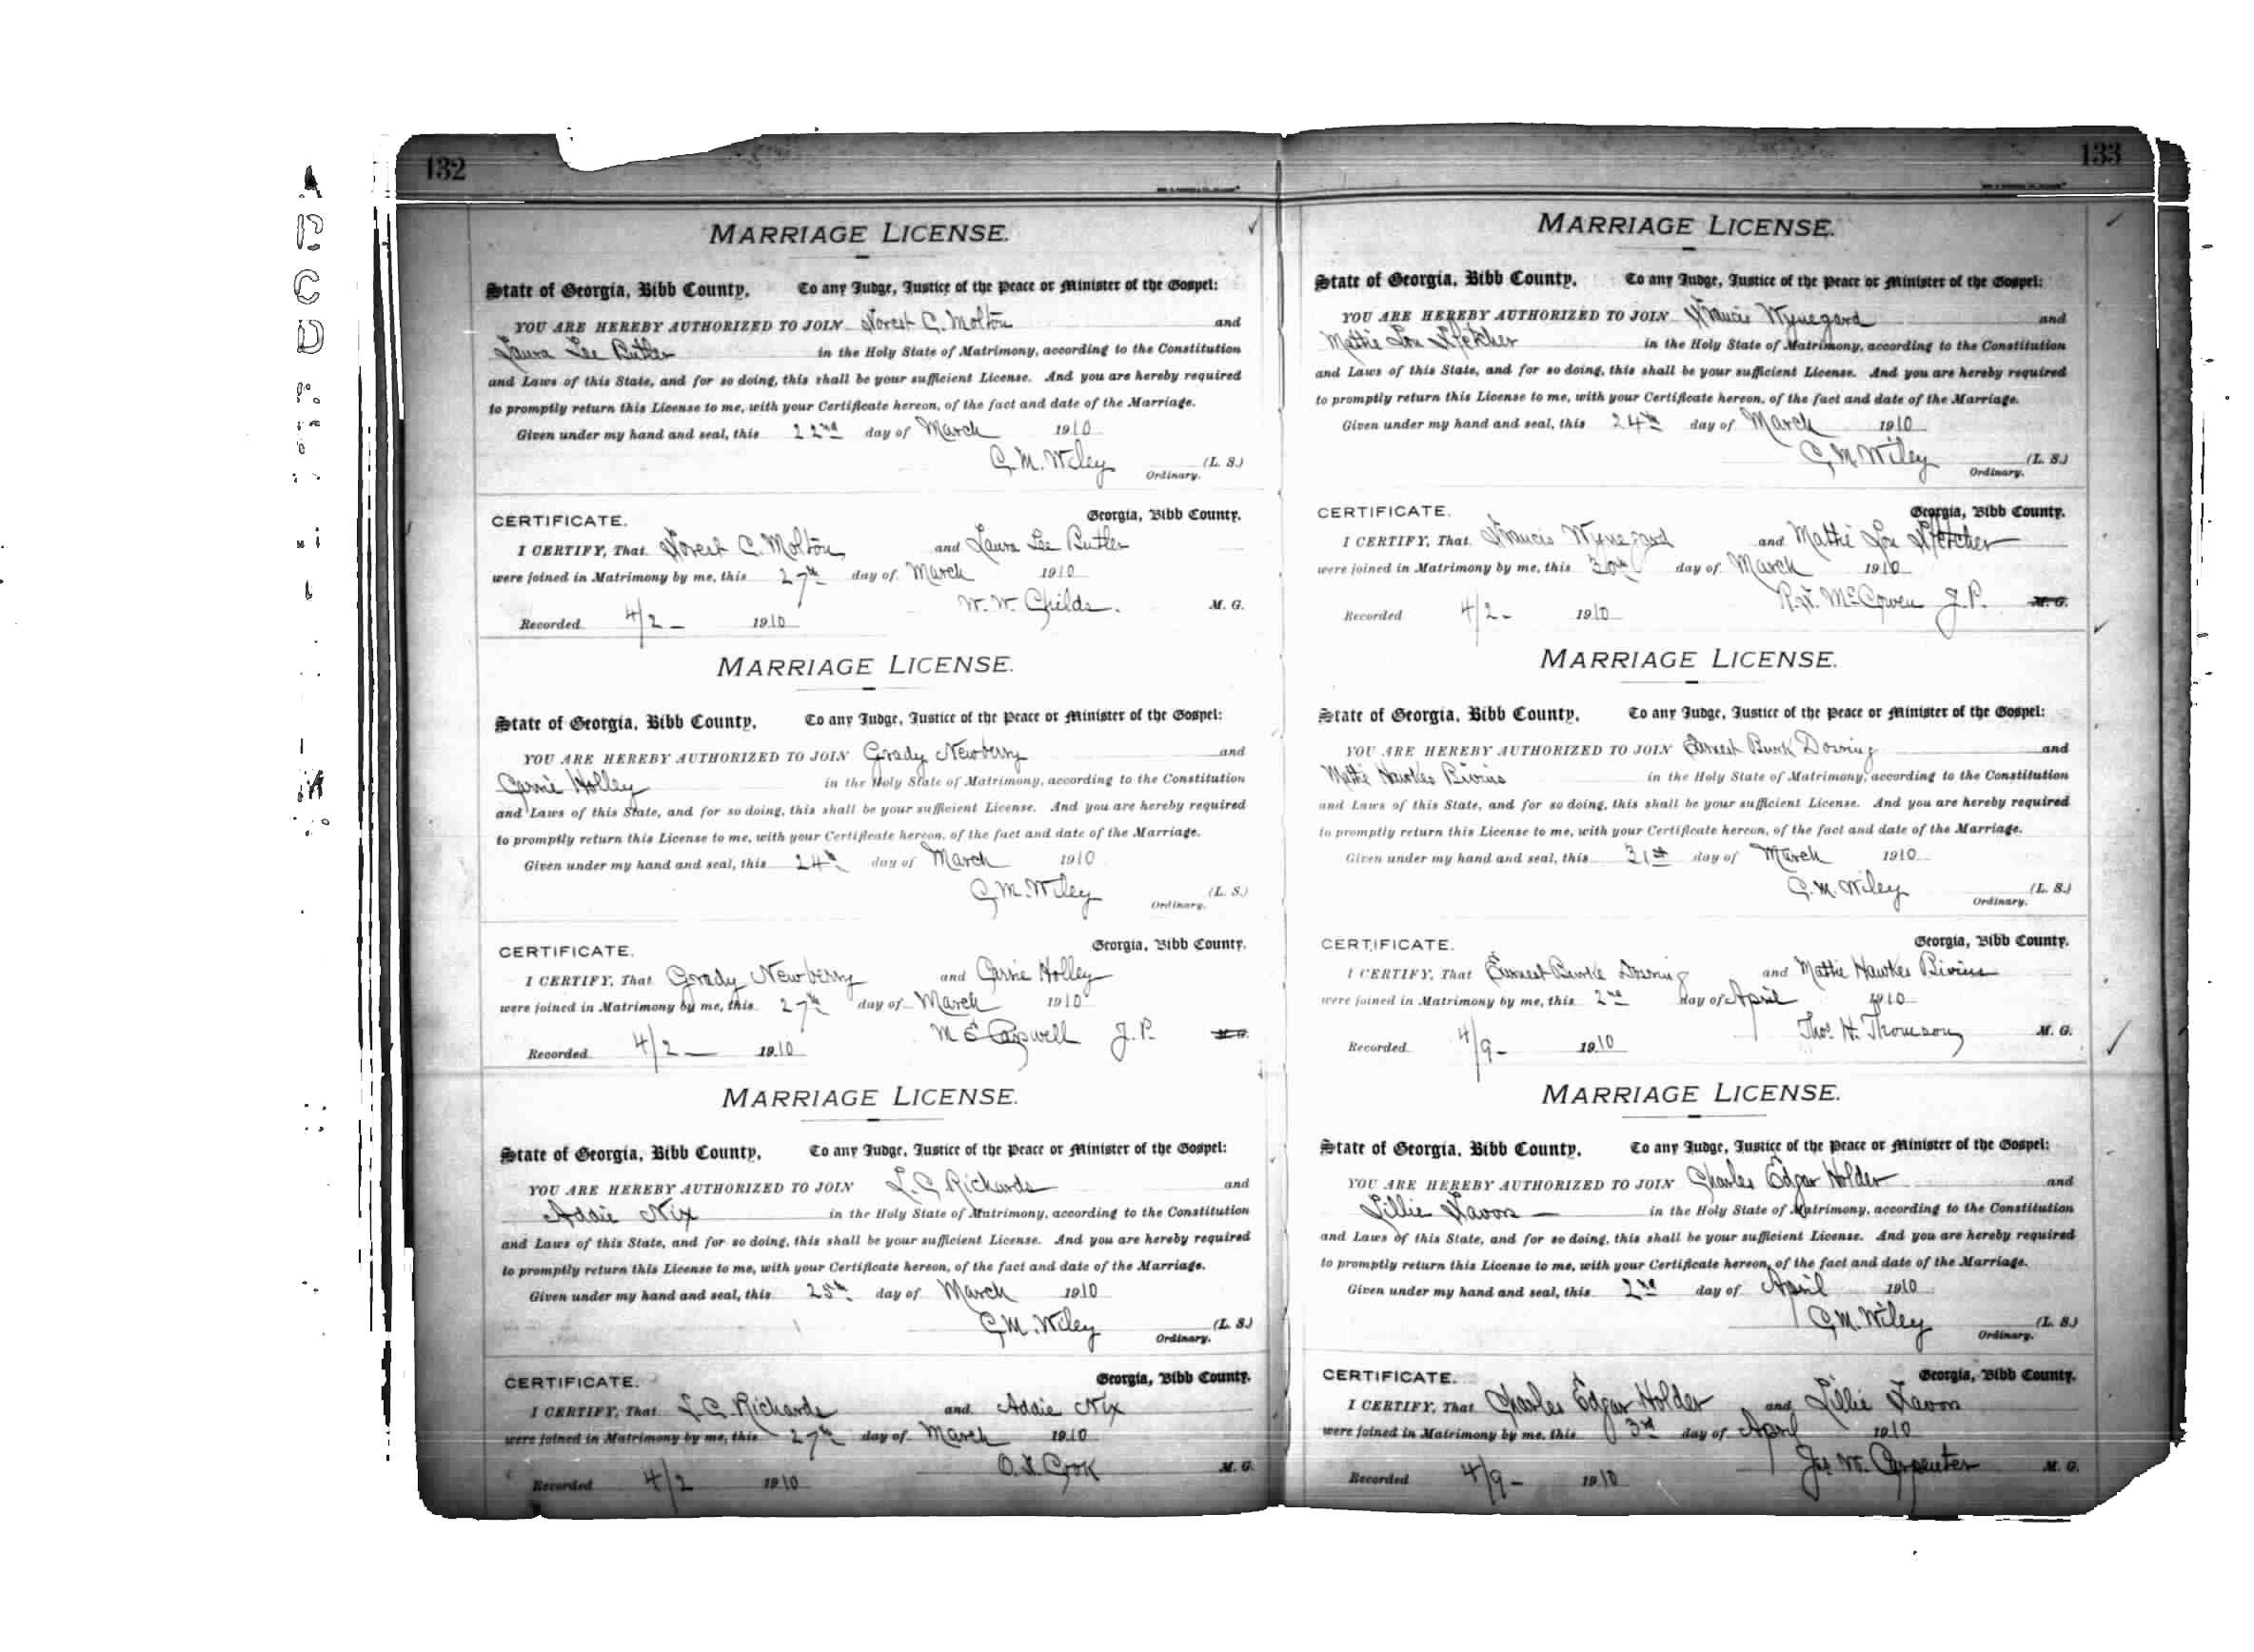 132
MARRIAGE LICENSE.
State of Georgia, Bibb County. To any Judge, Justice of the Peace or Minister of the Gospel:
YOU ARE HEREBY AUTHORIZED TO JOIN Forest C. Molton and
Laura Lee Butler in the Holy State of Matrimony, according to the Constitution
and Laws of this State, and for so doing, this shall be your sufficient License. And you are hereby required
to promptly return this License to me, with your Certificate hereon, of the fact and date of the Marriage.
Given under my hand and seal, this 22nd day of March 1910
C. M. Wiley (L. S.)
Ordinary.
CERTIFICATE. Georgia, Bibb County.
I CERTIFY, That Forest C. Molton and Laura Lee Butler
were joined in Matrimony by me, this 27th day of March 1910
W. W. Childs. M. G.
Recorded 4/2 — 1910
MARRIAGE LICENSE.
State of Georgia, Bibb County. To any Judge, Justice of the Peace or Minister of the Gospel:
YOU ARE HEREBY AUTHORIZED TO JOIN Grady Newberry and
Carrie Holley in the Holy State of Matrimony, according to the Constitution
and Laws of this State, and for so doing, this shall be your sufficient License. And you are hereby required
to promptly return this License to me, with your Certificate hereon, of the fact and date of the Marriage.
Given under my hand and seal, this 24th day of March 1910
C. M. Wiley (L. S.)
Ordinary.
CERTIFICATE. Georgia, Bibb County.
I CERTIFY, That Grady Newberry and Carrie Holley
were joined in Matrimony by me, this 27th day of March 1910
M E Carswell J. P. M. G.
Recorded 4/2 — 1910
MARRIAGE LICENSE.
State of Georgia, Bibb County. To any Judge, Justice of the Peace or Minister of the Gospel:
YOU ARE HEREBY AUTHORIZED TO JOIN L. C. Richards and
Addie Nix in the Holy State of Matrimony, according to the Constitution
and Laws of this State, and for so doing, this shall be your sufficient License. And you are hereby required
to promptly return this License to me, with your Certificate hereon, of the fact and date of the Marriage.
Given under my hand and seal, this 25th day of March 1910
C. M. Wiley (L. S.)
Ordinary.
CERTIFICATE. Georgia, Bibb County.
I CERTIFY, That L. C. Richards and Addie Nix
were joined in Matrimony by me, this 27th day of March 1910
Cook M. G.
Recorded 4/2 1910
133
MARRIAGE LICENSE.
State of Georgia, Bibb County. To any Judge, Justice of the Peace or Minister of the Gospel:
YOU ARE HEREBY AUTHORIZED TO JOIN Francis Wynegard and
Mattie Lou Fletcher in the Holy State of Matrimony, according to the Constitution
and Laws of this State, and for so doing, this shall be your sufficient License. And you are hereby required
to promptly return this License to me, with your Certificate hereon, of the fact and date of the Marriage.
Given under my hand and seal, this 24th day of March 1910
C. M. Wiley (L. S.)
Ordinary.
CERTIFICATE. Georgia, Bibb County.
I CERTIFY, That Francis Wynegard and Mattie Lou Fletcher
were joined in Matrimony by me, this 30th day of March 1910
McGowen J. P. M. G.
Recorded 4/2 - 1910
MARRIAGE LICENSE.
State of Georgia, Bibb County. To any Judge, Justice of the Peace or Minister of the Gospel:
YOU ARE HEREBY AUTHORIZED TO JOIN Earnest Burk Doring and
Mattie Hawkes Bivins in the Holy State of Matrimony, according to the Constitution
and Laws of this State, and for so doing, this shall be your sufficient License. And you are hereby required
to promptly return this License to me, with your Certificate hereon, of the fact and date of the Marriage.
Given under my hand and seal, this 31st day of March 1910
C. M. Wiley (L. S.)
Ordinary.
CERTIFICATE. Georgia, Bibb County.
I CERTIFY, That Earnest Burke Doring and Mattie Hawkes Bivins
were joined in Matrimony by me, this 2nd day of April 1910
Thos. H. Thomson M. G.
Recorded 4/9 - 1910
MARRIAGE LICENSE.
State of Georgia, Bibb County. To any Judge, Justice of the Peace or Minister of the Gospel:
YOU ARE HEREBY AUTHORIZED TO JOIN Charles Edgar Holder and
Lillie Favors — in the Holy State of Matrimony, according to the Constitution
and Laws of this State, and for so doing, this shall be your sufficient License. And you are hereby required
to promptly return this License to me, with your Certificate hereon, of the fact and date of the Marriage.
Given under my hand and seal, this 2nd day of April 1910
C. M. Wiley (L. S.)
Ordinary.
CERTIFICATE. Georgia, Bibb County.
I CERTIFY, That Charles Edgar Holder and Lillie Favors
were joined in Matrimony by me, this 3rd day of April 1910
Jas. W. Carpenter M. G.
Recorded 4/9 - 1910